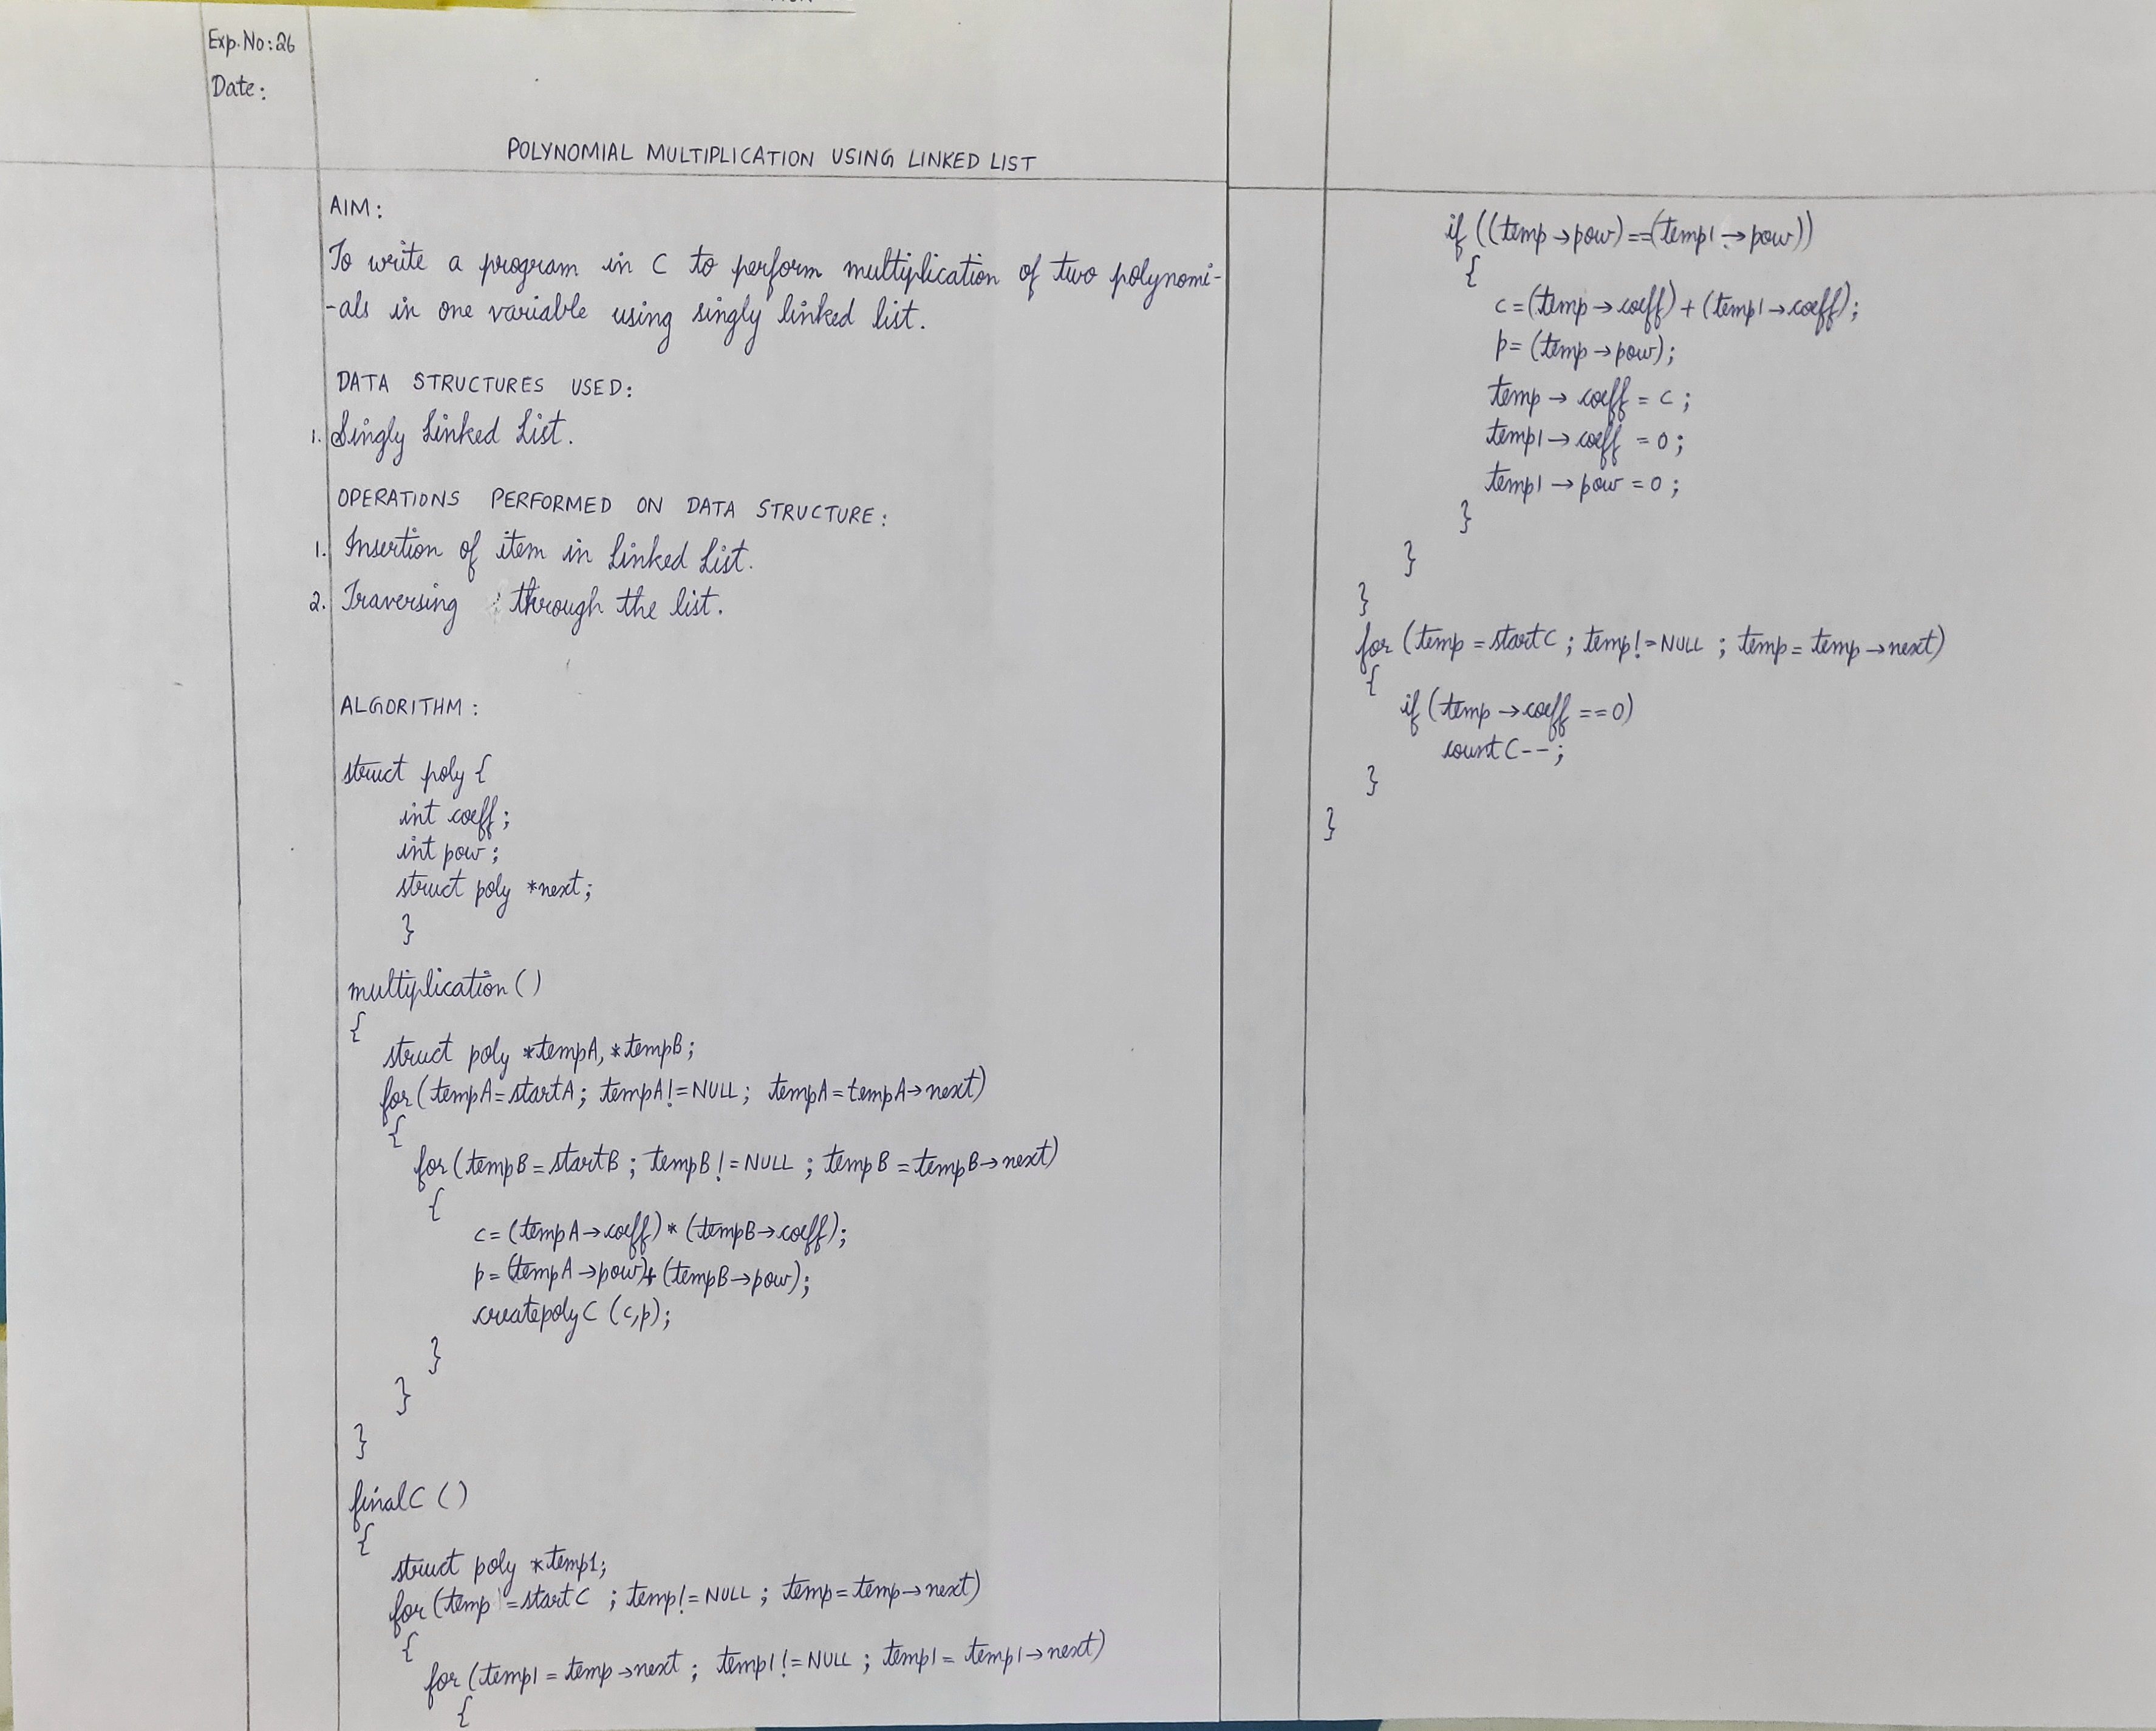 Exp.No:26
Date:
POLYNOMIAL MULTIPLICATION USING LINKED LIST
AIM:
To write a program in C to perform multiplication of two polynomi-
-als in one variable using singly linked list.
DATA STRUCTURES USED:
1. Singly Linked List.
OPERATIONS PERFORMED ON DATA STRUCTURE:
1. Insertion of item in Linked List.
2. Traversing through the list.
ALGORITHM:
struct poly {
int coeff;
int pow;
struct poly *next;
}
multiplication()
{
struct poly *tempA, *tempB;
for(tempA=startA; tempA!=NULL; tempA=tempA→next)
{
for(tempB=startB; tempB!=NULL; tempB=tempB→next)
{
c=(tempA→coeff)*(tempB→coeff);
p=(tempA→pow)+(tempB→pow);
createpolyC (c,p);
}
}
}
finalC ()
{
struct poly *temp1;
for(temp=startC; temp!=NULL; temp=temp→next)
{
for(temp1=temp→next; temp1!=NULL; temp1=temp1→next)
{
if((temp→pow)==(temp1→pow))
{
c=(temp→coeff)+(temp1→coeff);
p=(temp→pow);
temp→coeff=c;
temp1→coeff=0;
temp1→pow=0;
}
}
}
for(temp=startC; temp!=NULL; temp=temp→next)
{
if(temp→coeff==0)
countC--;
}
}